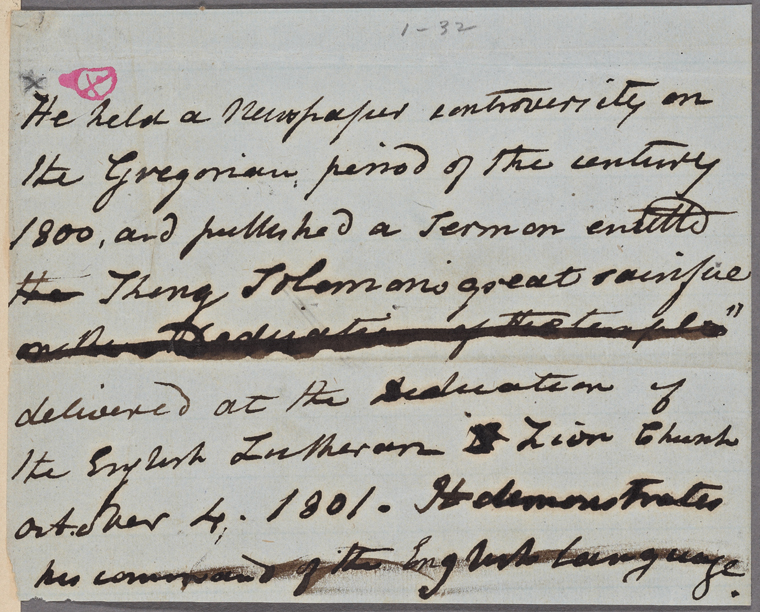 1-32
He held a Newspaper controversity on
the Gregorian period of the century
1800, and published a Sermon entittld
the King Solomons great sacrifice
on the Dedication of the temple"
delivered at the Dedication of
the English Lutheran Zion Church
october 4, 1801. It demonstrates
his command of the English Language.